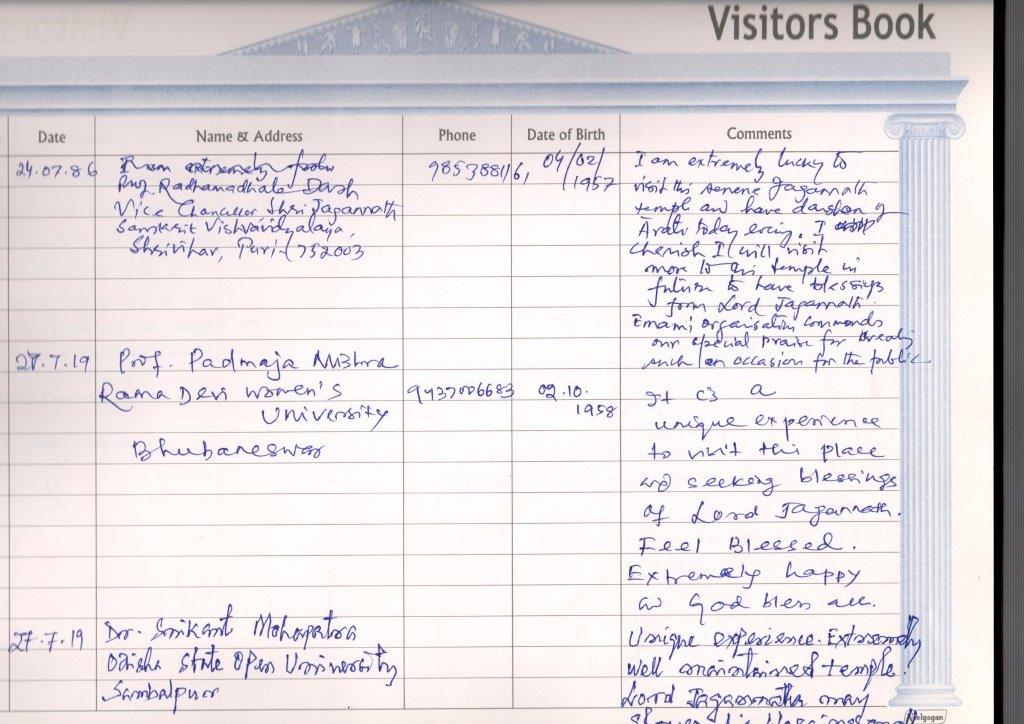 Visitors Book
Date Name & Address Phone Date of Birth Comments
24.07.86
I am extremely
Prof. Radhamadhab Dash
Vice Chancellor Shri Jagannath
Sanskrit Vishvavidyalaya,
Shrivihar, Puri-752003
04/02/
1957
I am extremely lucky to
visit this serene Jagannath
temple and have darshan of
Arati today I
cherish I will visit
more to this temple in
future to have blessings
from Lord Jagannath
Emami organisation commands
our special praise for
such an occasion for the public
27.7.19
Prof. Padmaja Mishra
Rama Devi Women's
University
Bhubaneswar
9437006683
02.10.
1958
It is a
unique experience
to visit this place
and seeking blessings
of Lord Jagannath.
Feel Blessed.
Extremely happy
God bless all.
27.7.19
Dr. Srikant Mohapatra
Odisha State Open University
Sambalpur
Unique experience. Extremely
well maintained temple.
Lord Jagannatha may